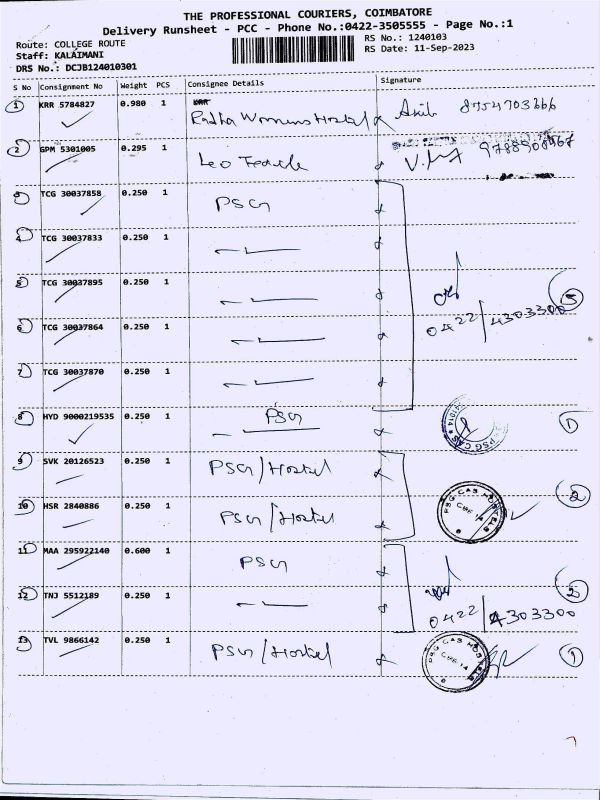 THE PROFESSIONAL COURIERS, COIMBATORE
Delivery Runsheet - PCC - Phone No.:0422-3505555 - Page No.:1
Route: COLLEGE ROUTE
Staff: KALAIMANI
DRS No.: DCJB124010301
RS No.: 1240103
RS Date: 11-Sep-2023
S No Consignment No Weight PCS Consignee Details Signature
1 KRR 5784827 0.980 1 Radha Womens Hostel
2 GPM 5301005 0.295 1 Leo
3 TCG 30037858 0.250 1 PSG
4 TCG 30037833 0.250 1
5 TCG 30037895 0.250 1
0422/4303300 5
6 TCG 30037864 0.250 1
7 TCG 30037870 0.250 1
8 HYD 9000219535 0.250 1 PSG PSG CAS 641014 1
9 SVK 20126523 0.250 1 PSG/Hostel
10 HSR 2840886 0.250 1 PSG/Hostel PSG CAS HOSTELS CBE-14 2
11 MAA 295922140 0.600 1 PSG
12 TNJ 5512189 0.250 1 0422/4303300
13 TVL 9866142 0.250 1 PSG/Hostel PSG CAS HOSTELS CBE-14 1